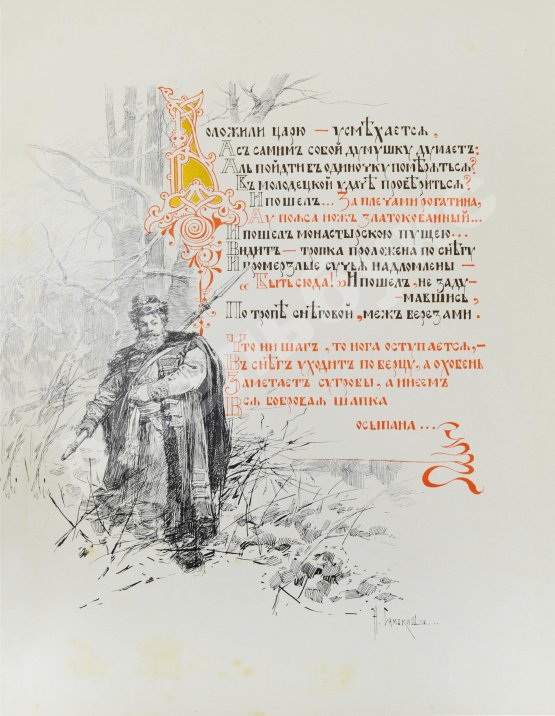 Доложили царю — усмѣхается,
А съ самимъ собой думушку думаетъ:
Аль пойдти въ одиночку помѣряться?
Въ молодецкой удачѣ провѣриться?
И пошелъ... За плечами рогатина,
А у пояса ножъ златокованный...
И пошелъ монастырскою пущею...
Видитъ — тропка проложена по снѣгу
И промерзлые сучья надломлены —
„Быть сюда!" И пошелъ, не заду-
-мавшись,
По тропѣ снѣговой, межъ березами.
Что ни шагъ, то нога оступается, —
Въ снѣгъ уходитъ по берцу, а охобень
Заметаетъ сугробы, а инеемъ
Вся бобровая шапка
осыпана...
Н. Самокишъ